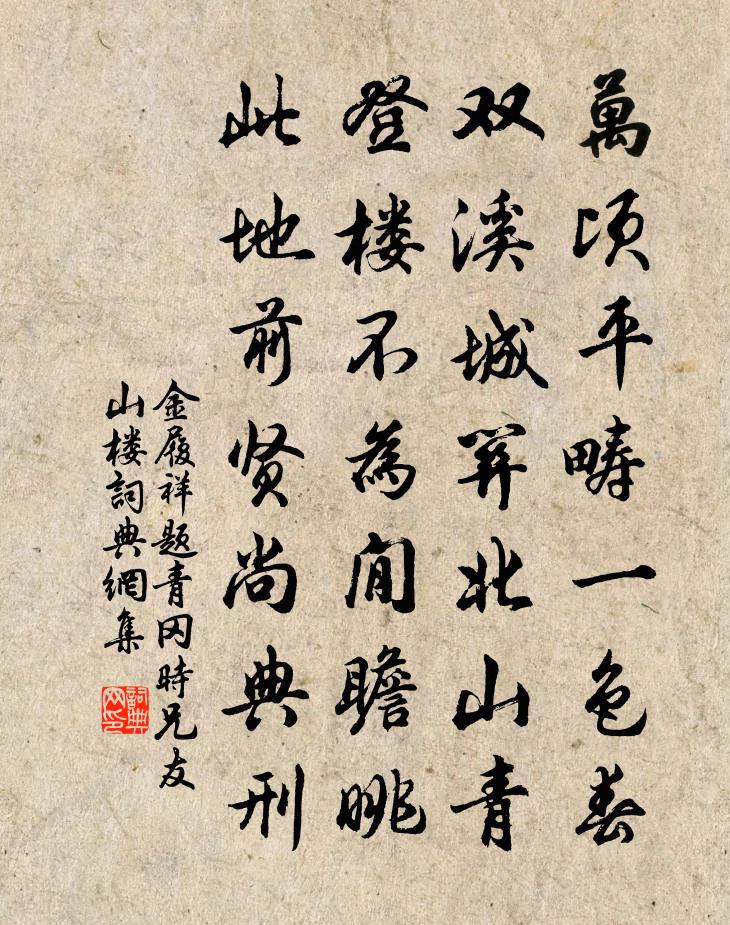 萬顷平畴一色春
双溪城郭北山青
登楼不為閒瞻眺
此地前贤尚典刑
金履祥题青冈時兄友
山楼詞典網集
詞典网印